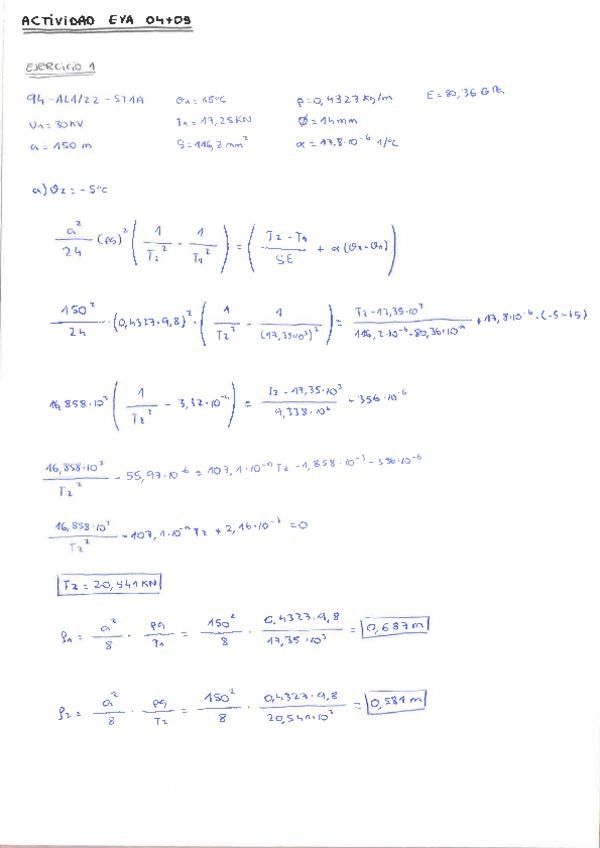 ACTIVIDAD EVA 04+05
EJERCICIO 1
94-AL1/22-ST1A θ₁=15°C ρ=0,4327 kg/m E=80,36 GPa
U₁=30KV T₁=17,25KN Ø=14mm
a=150 m S=116,2 mm² α=17,8·10⁻⁶ 1/°C
a) θ₂=-5°C
a²/24 (ρg)² (1/T₂² - 1/T₁²) = ((T₂-T₁)/SE + α(θ₂-θ₁))
150²/24 · (0,4327·9,8)² · (1/T₂² - 1/(17,35·10³)²) = (T₂-17,35·10³)/(116,2·10⁻⁶·80,36·10⁹) + 17,8·10⁻⁶·(-5-15)
16,858·10³ (1/T₂² - 3,32·10⁻⁹) = (T₂-17,35·10³)/(9,338·10⁶) - 356·10⁻⁶
16,858·10³/T₂² - 55,97·10⁻⁶ = 107,1·10⁻⁹ T₂ - 1,858·10⁻³ - 356·10⁻⁶
16,858·10³/T₂² - 107,1·10⁻⁹ T₂ + 2,16·10⁻³ = 0
T₂=20,541 KN
f₁ = a²/8 · ρg/T₁ = 150²/8 · 0,4327·9,8/17,35·10³ = 0,687m
f₂ = a²/8 · ρg/T₂ = 150²/8 · 0,4327·9,8/20,541·10³ = 0,581 m